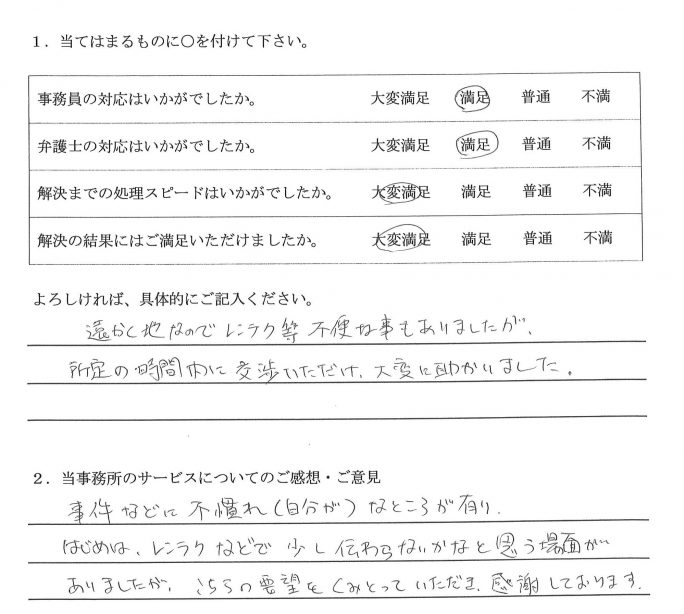 1．当てはまるものに○を付けて下さい。
事務員の対応はいかがでしたか。 大変満足 満足 普通 不満
弁護士の対応はいかがでしたか。 大変満足 満足 普通 不満
解決までの処理スピードはいかがでしたか。 大変満足 満足 普通 不満
解決の結果にはご満足いただけましたか。 大変満足 満足 普通 不満
よろしければ、具体的にご記入ください。
遠かく地なのでレンラク等 不便な事もありましたが、
所定の時間内に交渉いただけ、大変に助かりました。
2．当事務所のサービスについてのご感想・ご意見
事件などに不慣れ(自分が)なところが有り、
はじめは、レンラクなどで少し伝わらないかなと思う場面が
ありましたが、こちらの要望をくみとっていただき、感謝しております。